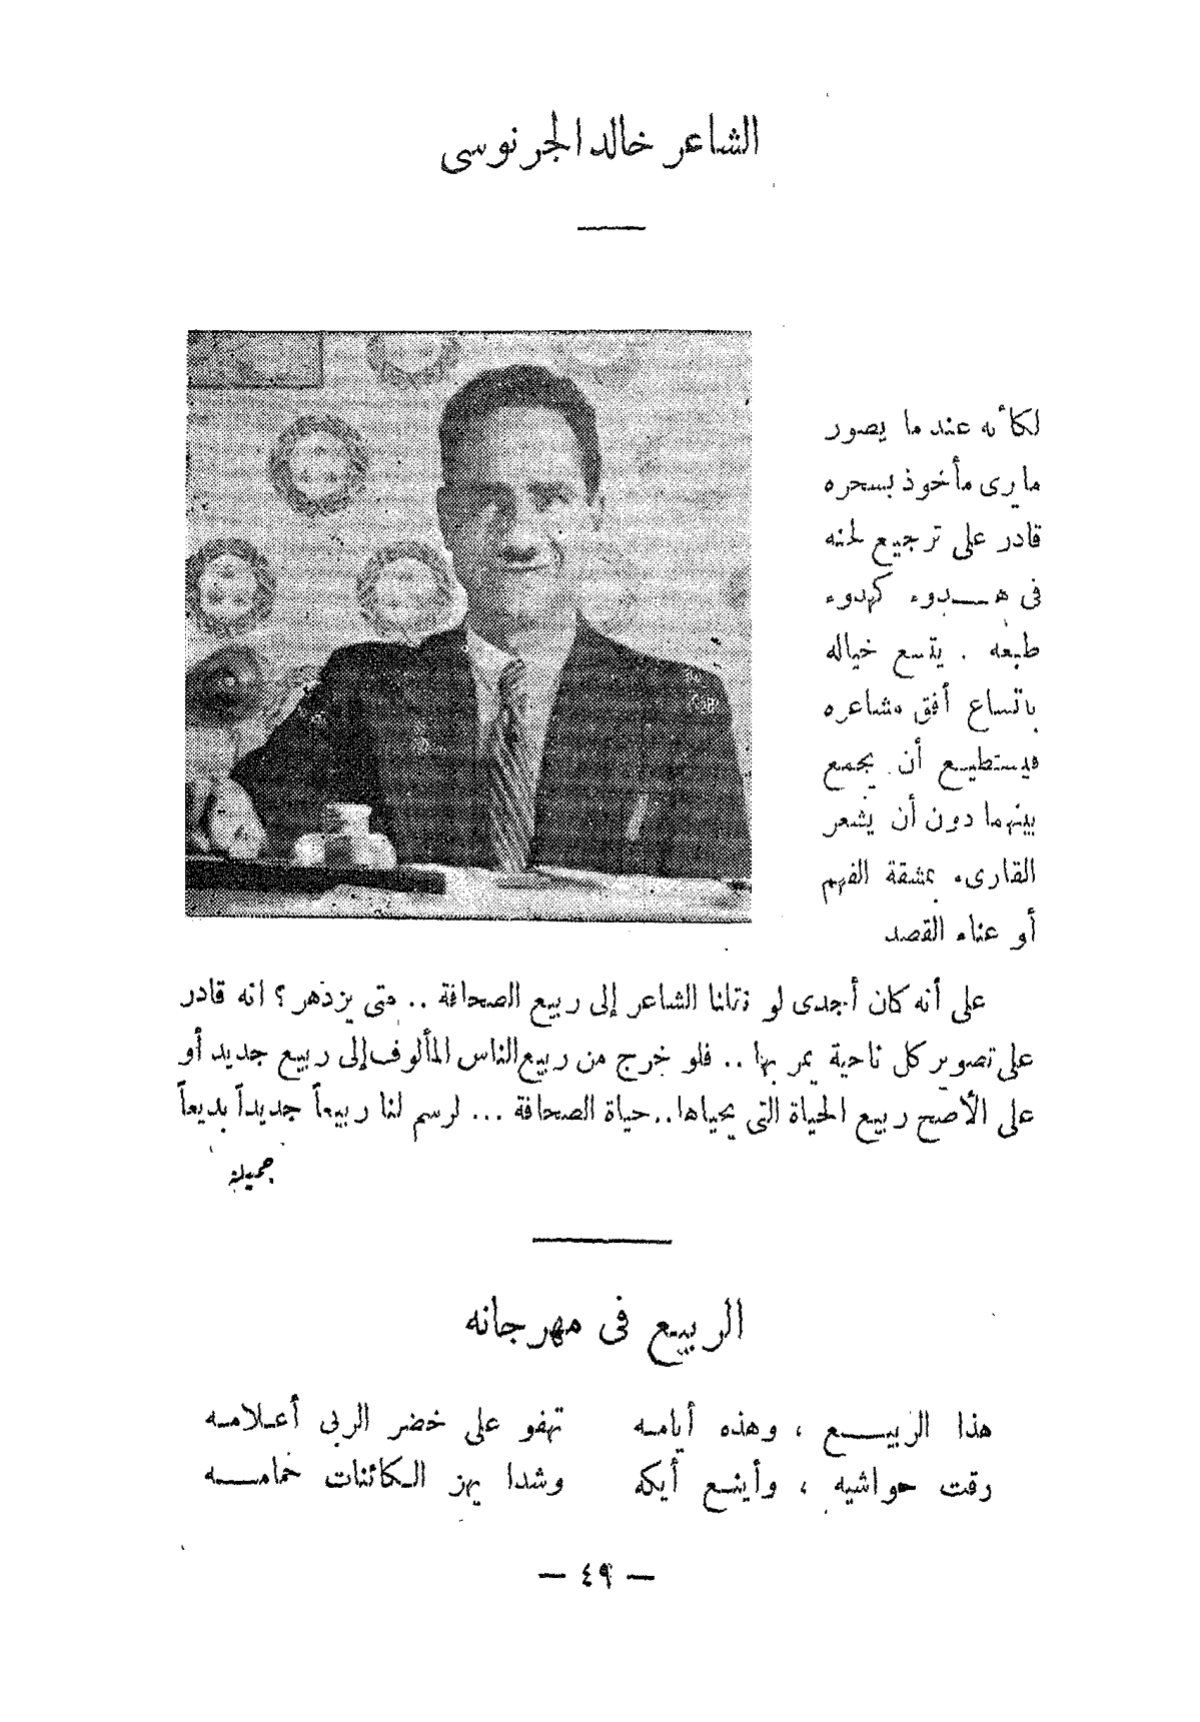 الشاعر خالد الجرنوسى
لكأنه عندما يصور
مايرى مأخوذ بسحره
قادر على ترجيع لحنه
فى هــدوء كهدوء
طبعه . يتسع خياله
باتساع أفق مشاعره
فيستطيع أن يجمع
بينهما دون أن يشعر
القارىء بمشقة الفهم
أو عناء القصد
على أنه كان أجدى لو نقلنا الشاعر إلى ربيع الصحافة .. متى يزدهر ؟ انه قادر
على تصوير كل ناحية يمر بها .. فلو خرج من ربيع الناس المألوف إلى ربيع جديد أو
على الأصح ربيع الحياة التى يحياها .. حياة الصحافة ... لرسم لنا ربيعاً جديداً بديعاً
جميلة
الربيع فى مهرجانه
هذا الربيــع ، وهذه أيامـه تهفو على خضر الربى أعـلامـه
رقت حواشيه ، وأينـع أيكه وشدا يهز الـكائنات حمامـــه
— ٤٩ —